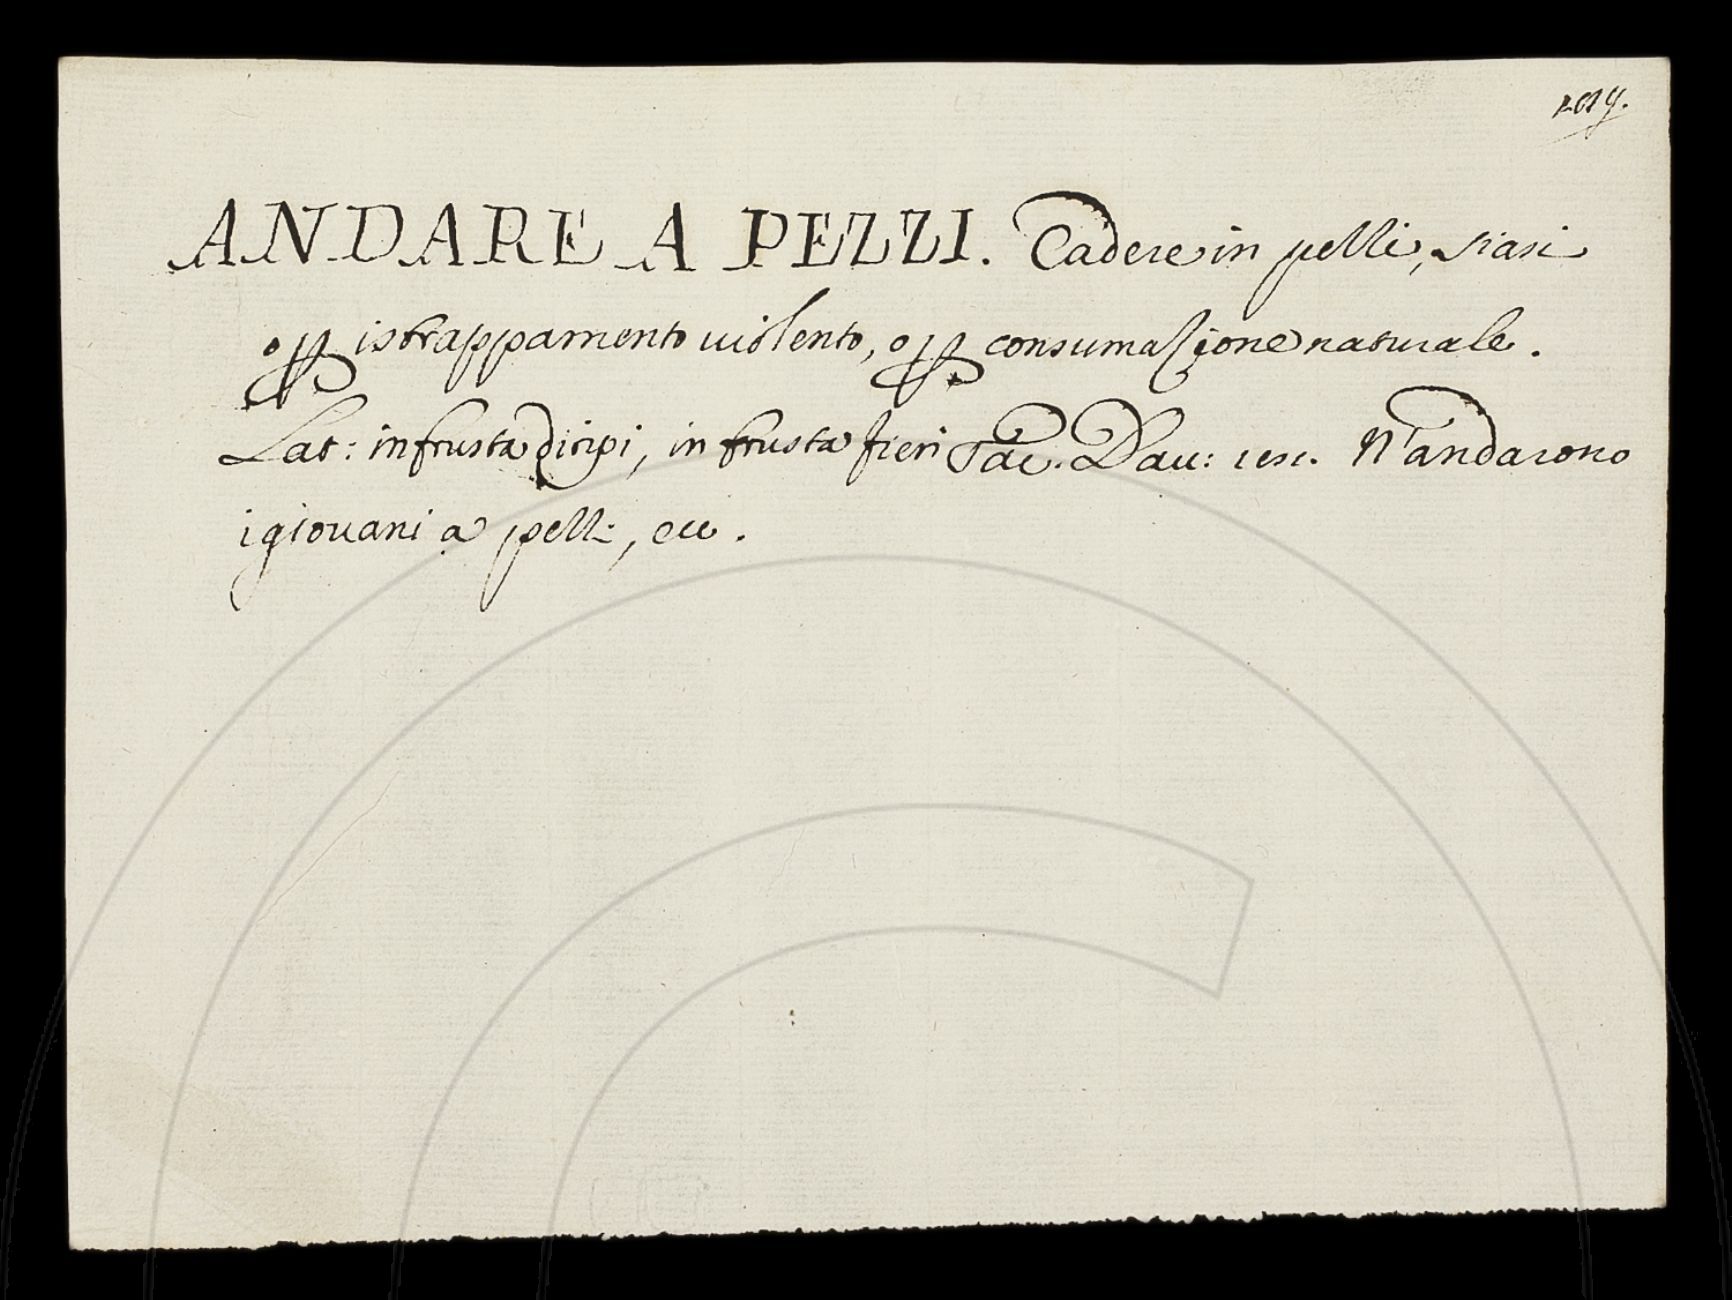 ANDARE A PEZZI. Cadere in pezzi, siasi
o ꝑ istrappamento violento, o ꝑ consumazione naturale.
Lat: in frusta diripi, in frusta fieri Tac. Dav:
N'andarono
i giovani a pezzi, ecc.